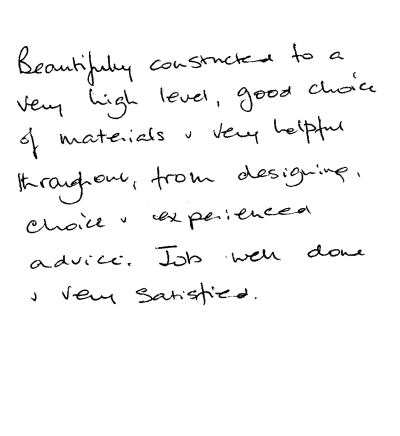 Beautifully constructed to a
very high level, good choice
of materials & very helpful
throughout, from designing,
choice & experienced
advice. Job well done
& very satisfied.